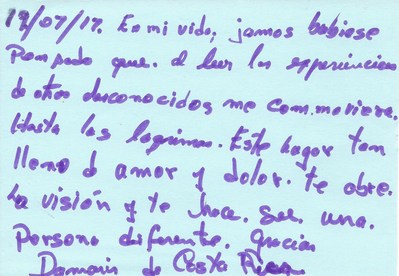 19/07/17. En mi vida, jamas hubiese
Pensado que. al leer las experiencias
de otros desconocidos me conmoviera.
Hasta las lagrimas. Este lugar tan
lleno d amor y dolor. te abre.
La visión y te hace. Ser una.
Persona diferente. Gracias
Damaris de Costa Rica